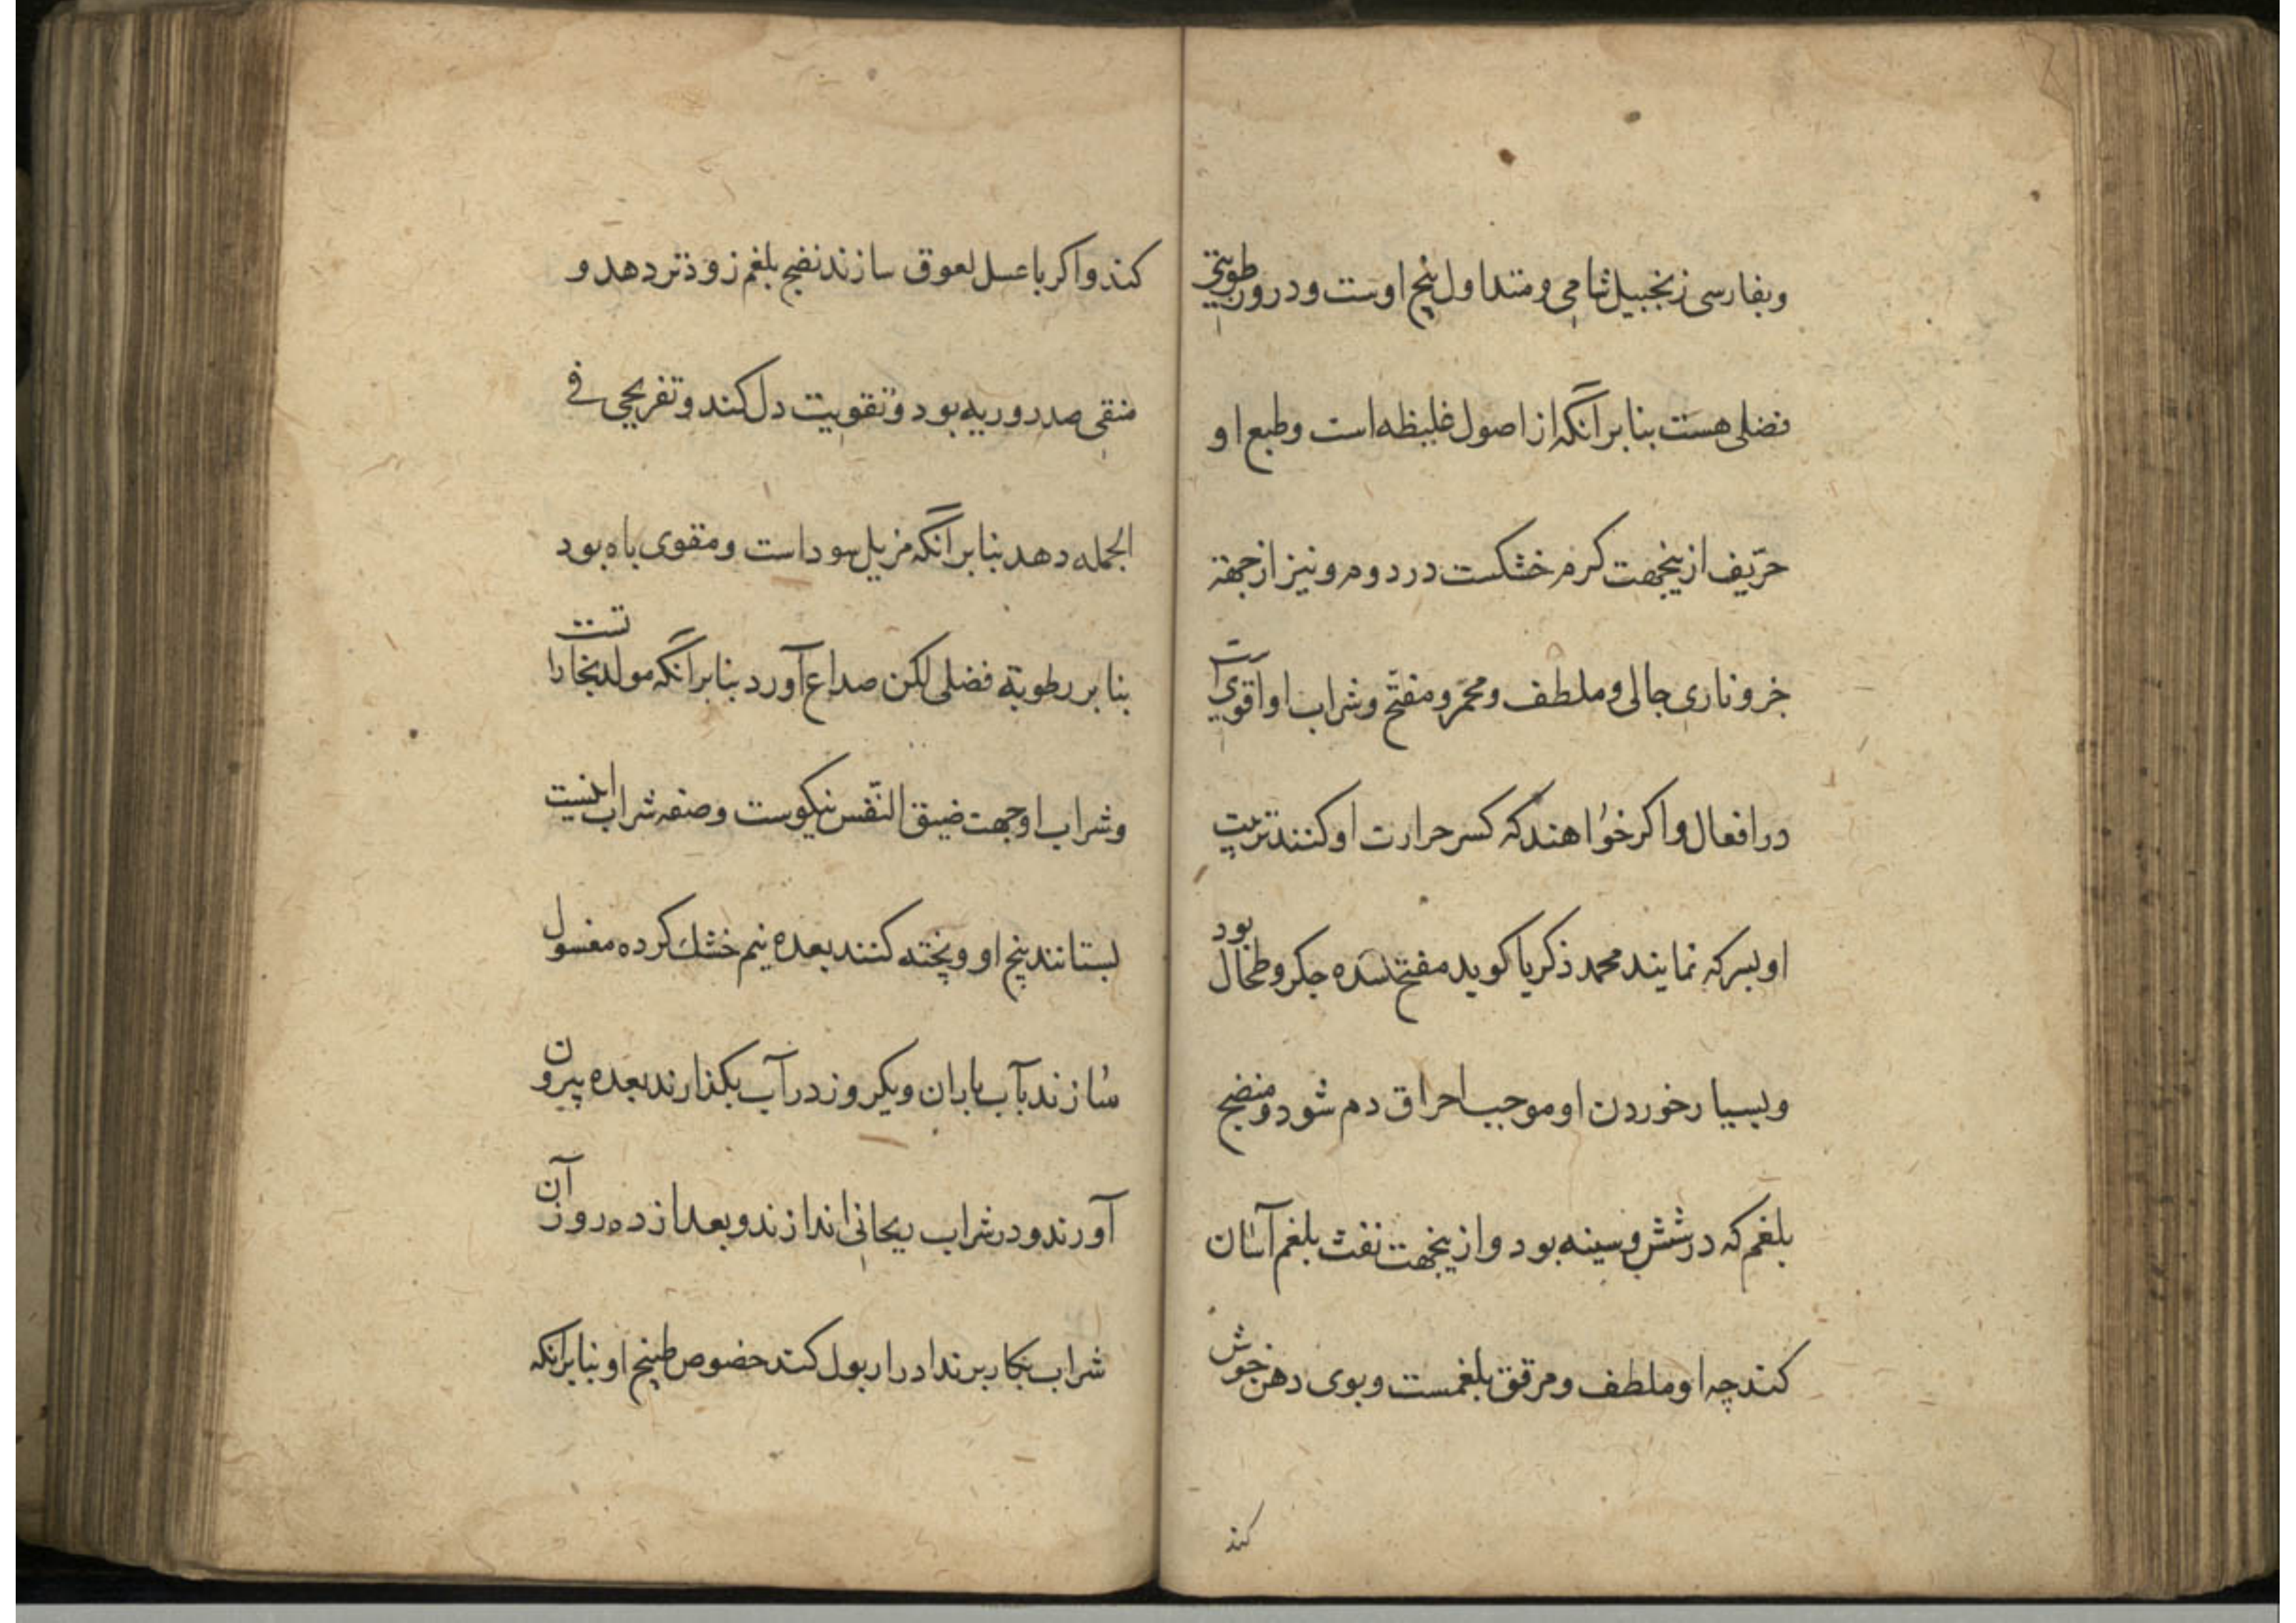 وبفارسی زنجبیل شامی و متداول بیخ اوست و درو رطوبتی
فضلی هست بنا بر آنکه از اصول غلیظه است و طبع او
حرّیف ازینجهت کرم خشکست در دوم و نیز از جهة
جزو ناری جالی و ملطف و محمّر و مفتّح و شراب او اقوی است
در افعال و اکر خواهند که کسر حرارت او کنند تربیت
او بسرکه نمایند محمد ذکریا کوید مفتح سده جکر و طحال بود
و بسیار خوردن او موجب احراق دم شود و منضج
بلغم که در شش و سینه بود و ازینجهت نفث بلغم آسان
کند چه او ملطف و مرقق بلغمست و بوی دهن خوش
کند
کند و اکر با عسل لعوق سازند نضج بلغم زوذتر دهد و
منقی صدر و ریه بود و تقویت دل کند و تفریحی فی
الجمله دهد بنا بر آنکه مزیل سوداست و مقوی باه بود
بنا بر رطوبة فضلی لکن صداع آورد بنا بر آنکه مولد بخاراتست
و شراب او جهت ضیق النّفس نیکوست و صفه شراب اینست
بستانند بیخ او و پخته کنند بعده نیم خشک کرده مغسول
سازند بآب باران و یکروز در آب بکذارند بعده بیرون
آورند و در شراب ریحانی اندازند و بعد از ده روز آن
شراب بکار برند ادرار بول کند خصوص طبیخ او بنا بر انکه